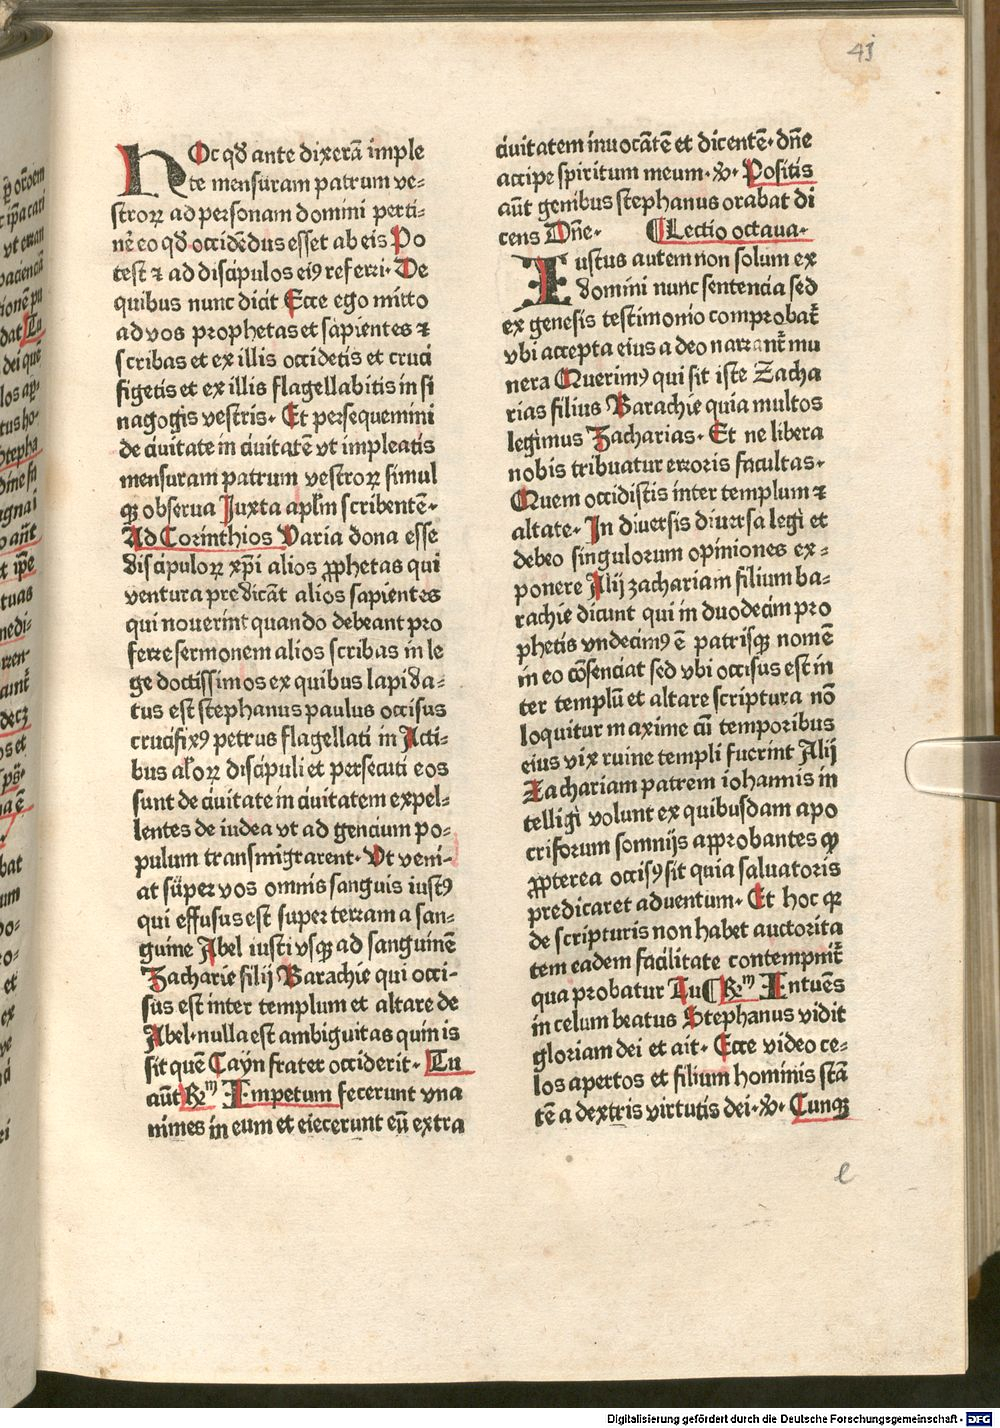 41
HOc qḋ ante dixerā imple
te mensuram patrum ve⸗
stroꝝ ad personam domini perti⸗
nēt eo qḋ occidēdus esset ab eis Po
test ⁊ ad discipulos eiꝰ referri· De
quibus nunc dicit Ecce ego mitto
ad vos prophetas et sapientes ⁊
scribas et ex illis occidetis et cruci
figetis et ex illis flagellabitis in si
nagogis vestris· Et persequemini
de ciuitate in ciuitatē vt impleatis
mensuram patrum vestroꝝ simul
qꝫ obserua Juxta aplm̄ scribentē·
Ad Corinthios Varia dona esse
discipuloꝝ xp̄i alios ꝓphetas qui
ventura predicāt alios sapientes
qui nouerint quando debeant pro
ferre sermonem alios scribas in le
ge doctissimos ex quibus lapida⸗
tus est stephanus paulus occisus
crucifixꝰ petrus flagellati in Acti⸗
bus apl̄oꝝ discipuli et persecuti eos
sunt de ciuitate in ciuitatem expel⸗
lentes de iudea vt ad gencium po⸗
pulum transmigrarent· Vt veni⸗
at süper vos omnis sanguis iustꝰ
qui effusus est super terram a san⸗
guine Abel iusti vsqꝫ ad sanguinē
Zacharie filij Barachie qui occi⸗
sus est inter templum et altare de
Abel· nulla est ambiguitas quin is
sit quē Cayn frater occiderit· Tu
aūt ℞ᵐ Impetum fecerunt vna
nimes in eum et eiecerunt eū extra
ciuitatem inuocātem et dicentē· dn̄e
accipe spiritum meum· ℣· Positis
aūt genibus stephanus orabat di
cens Dn̄e· ¶Lectio octaua·
Iustus autem non solum ex
domini nunc sentencia sed
ex genesis testimonio comprobat᷑
vbi accepta eius a deo narrant᷑ mu
nera Querimꝰ qui sit iste Zacha
rias filius Barachie quia multos
legimus Zacharias· Et ne libera
nobis tribuatur erroris facultas·
Quem occidistis inter templum ⁊
altate· In diuersis diuersa legi et
debeo singulorum opiniones ex⸗
ponere Alij zachariam filium ba⸗
rachie dicunt qui in duodecim pro
phetis vndecimꝰ ē patrisqꝫ nomē
in eo cōsenciat sed vbi occisus est in
ter templū et altare scriptura nō
loquitur maxime cū temporibus
eius vix ruine templi fuerint Alij
Zachariam patrem iohannis in
telligi volunt ex quibusdam apo
criforum somnijs approbantes ꝙ
ꝓpterea occisꝰ sit quia saluatoris
predicaret aduentum· Et hoc qꝛ
de scripturis non habet auctorita
tem eadem facilitate contempnit᷑
qua probatur Tu ¶℞ᵐ Intuēs
in celum beatus Stephanus vidit
gloriam dei et ait· Ecce video ce⸗
los apertos et filium hominis stā
tē a dextris virtutis dei· ℣· Cunqꝫ
e
Digitalisierung gefördert durch die Deutsche Forschungsgemeinschaft - DFG